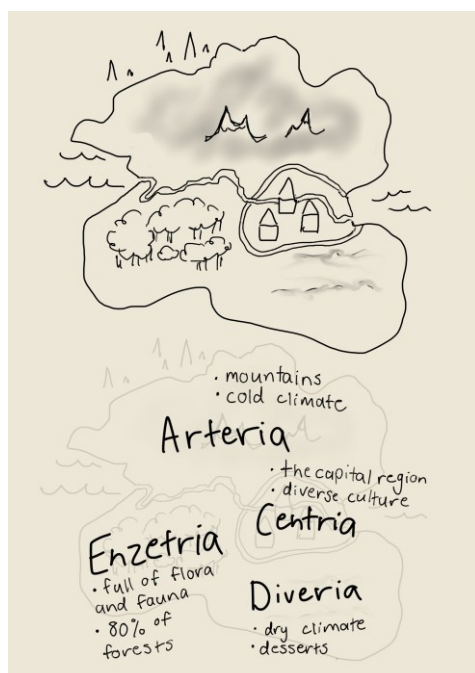 • mountains
• cold climate
Arteria
• the capital region
• diverse culture
Centria
Enzetria
• full of flora
and fauna
• 80% of
forests
Diveria
• dry climate
• desserts